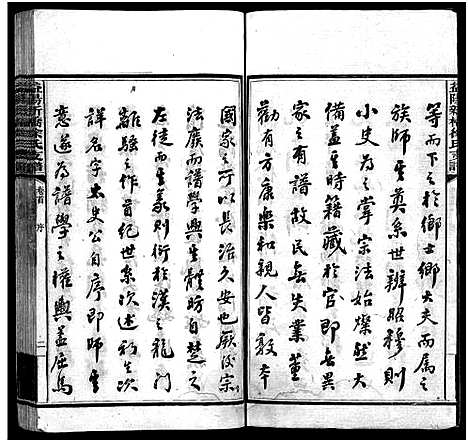 益陽新橋徐氏支譜
等而下之於鄉士鄉大夫而屬之
族師重奠系世辨昭穆則
小史為之掌宗法始燦然大
備蓋重時籍藏於官即無異
家之有方策也故民無失業蕫
勸有方康樂和親人皆敦本
國家之所以長治久安也厥後宗
法廢而譜學興重體昉自楚之
左徒而重義則衍於漢之龍門
離騷之作首紀世系次述初生次
詳名字太史公自序即師重
意遂為譜學之權輿蓋屈馬
益陽新橋徐氏支譜
卷首
序
二